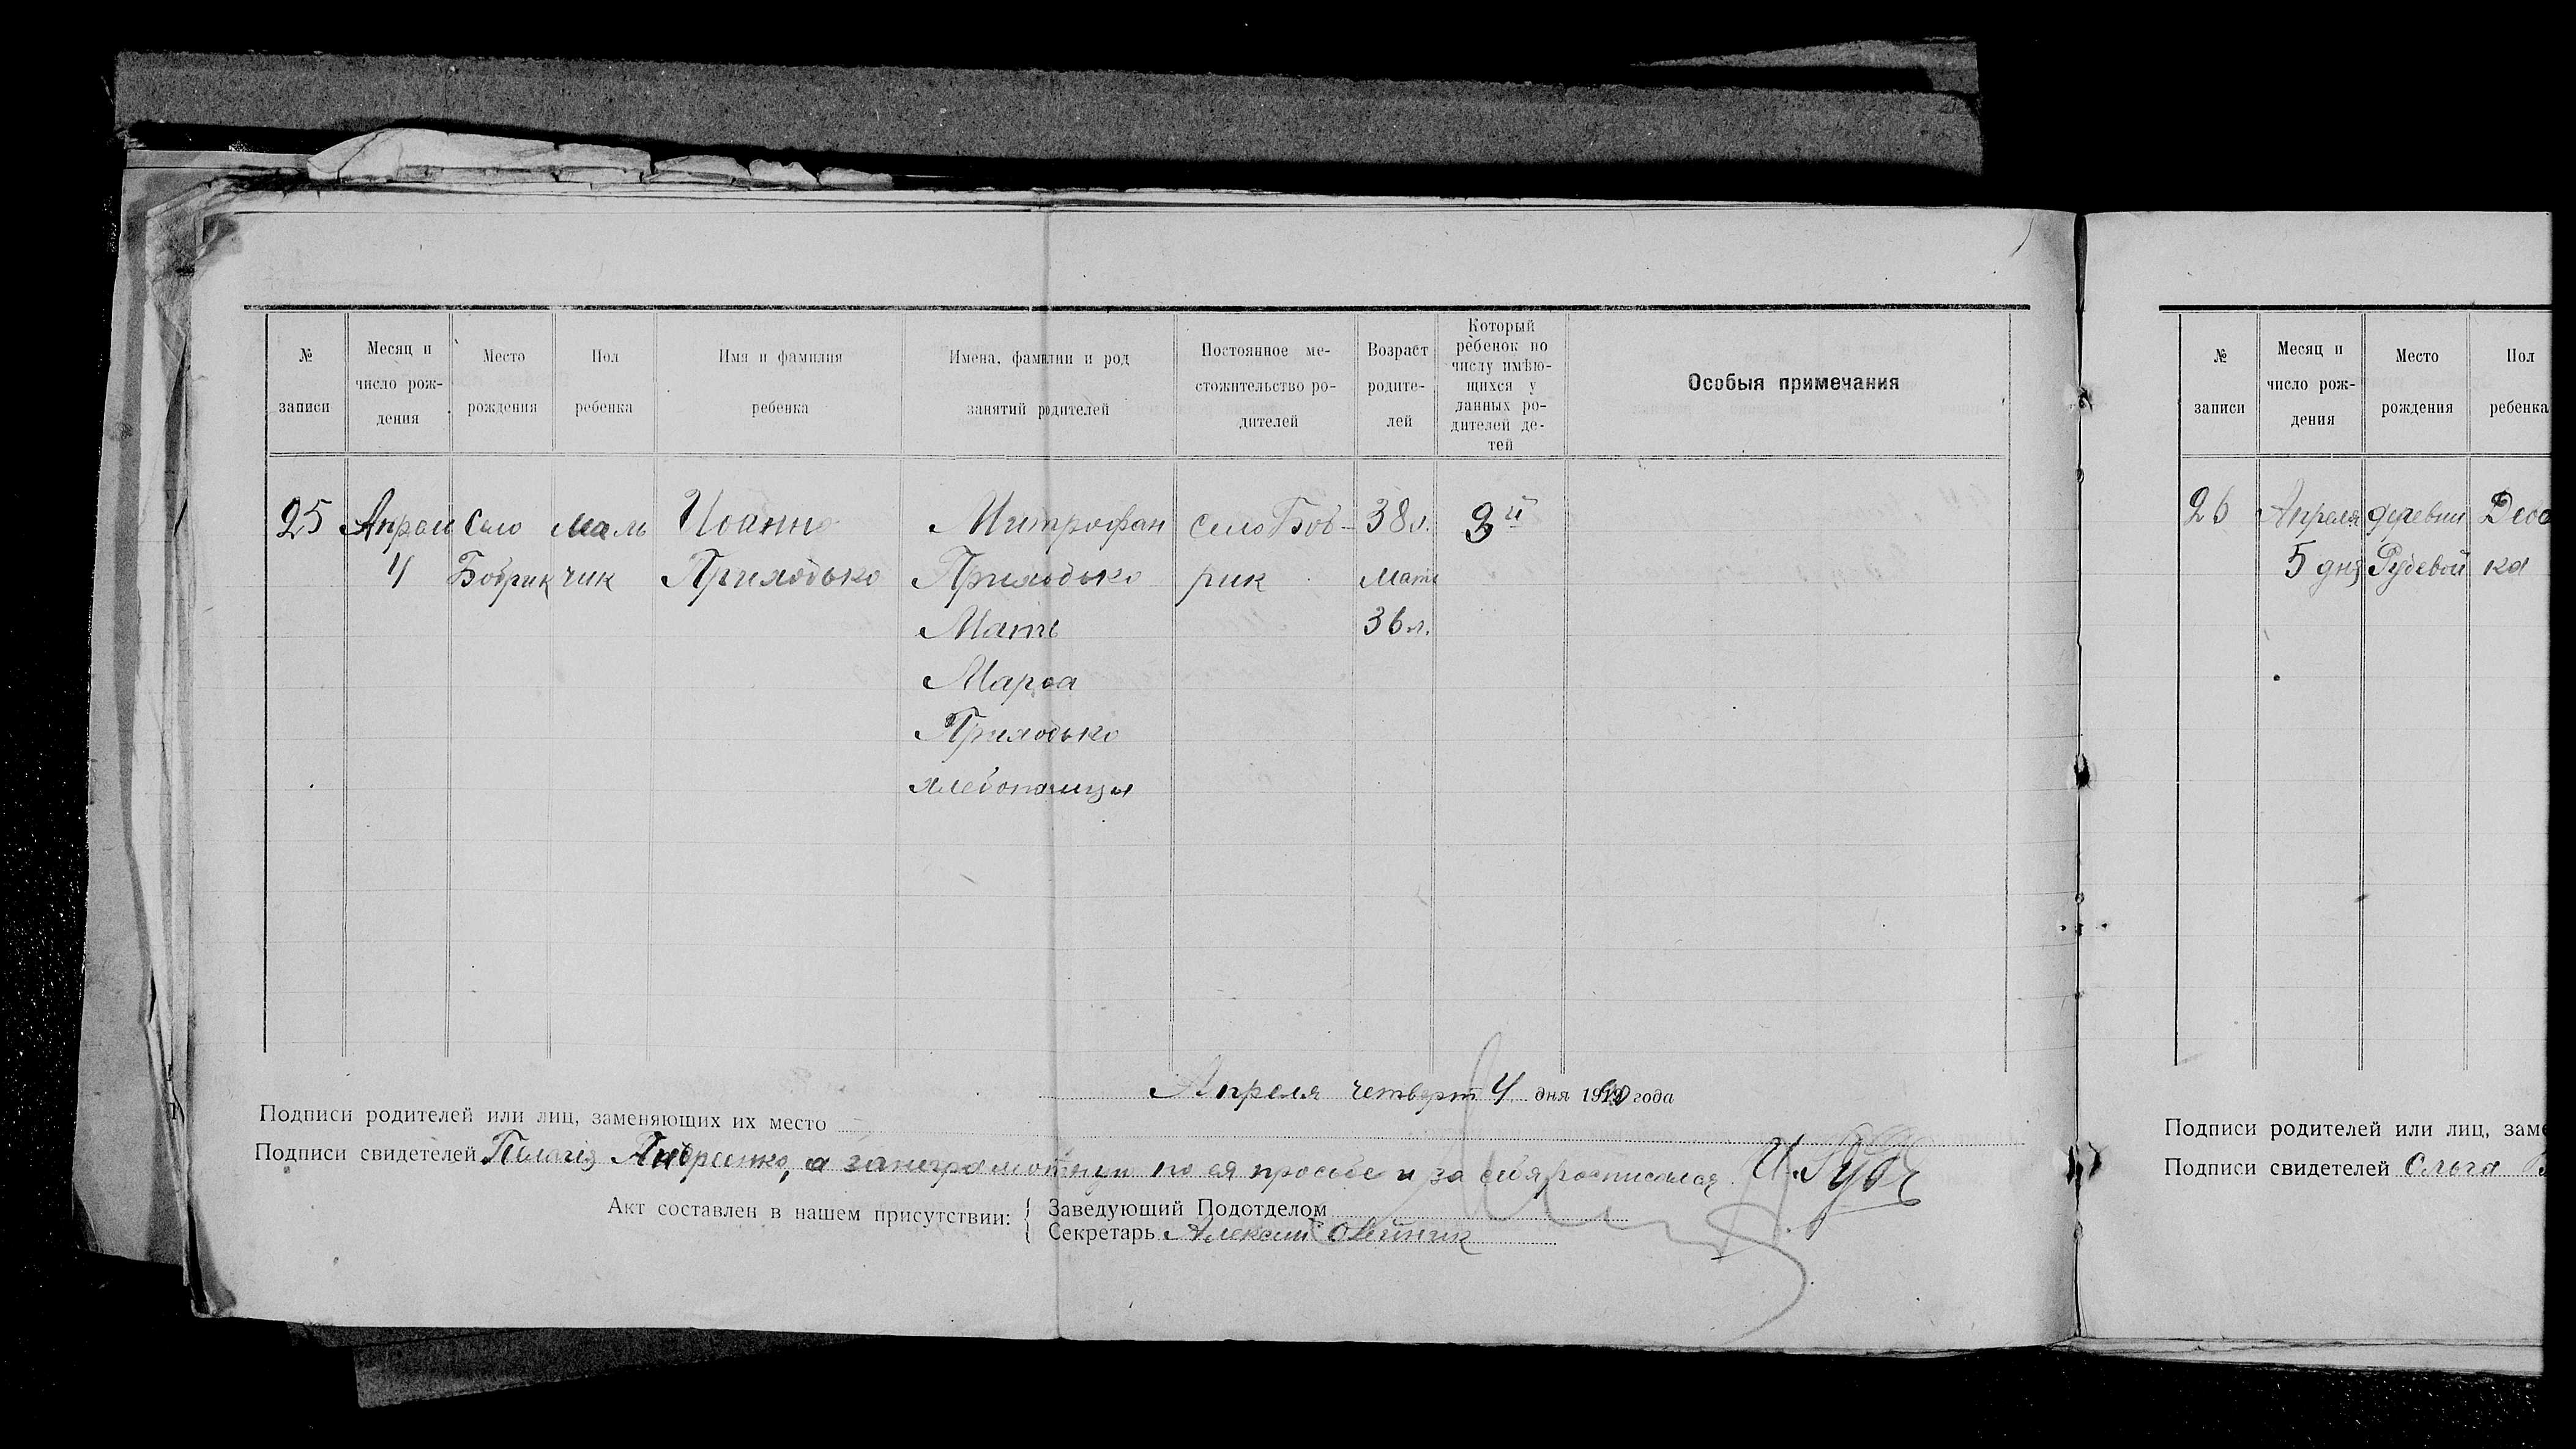 № записи
Месяц и число рождения
Место рождения
Пол ребенка
Имя и фамилия ребенка
Имена, фамилии и род занятий родителей
Постоянное местожительство родителей
Возраст родителей
Который ребенок по числу имѣющихся у данных родителей детей
Особыя примечания
25 Апрел Село маль Иоанн Митрофан село Боб- 38 л. 3й
4 Бобрик чик Приходько Приходько рик Мать
Мать 36 л.
Марѳа
Приходько
хлебопашцы
Апреля четверт 4 дня 1920 года
Подписи родителей или лиц, заменяющих их место
Подписи свидетелей Пелагия Андреенко, а за неграмотную по ея просьбе и за себя росписалася И.
Акт составлен в нашем присутствии:
Заведующий Подотделом
Секретарь Алексей Олейник
№ записи
Месяц и число рождения
Место рождения
Пол ребенка
26 Апреля деревни Дево
5 дня Рудевой ка
Подписи родителей или лиц, заме
Подписи свидетелей Ольга